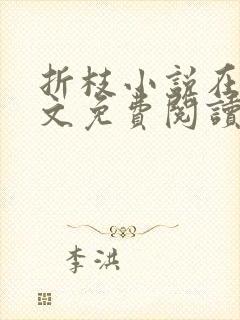 折枝小说在
文免費閱讀
李洪